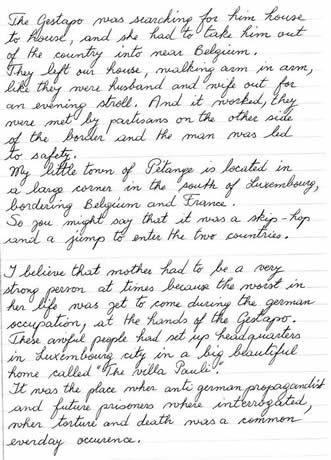 The Gestapo was searching for him house
to house, and she had to take him out
of the country into near Belgium.
They left our house, walking arm in arm,
like they were husband and wife out for
an evening stroll. And it worked, they
were met by partisans on the other side
of the border and the man was led
to safety.
My little town of Pétange is located in
a large corner in the south of Luxembourg,
bordering Belgium and France.
So you might say that it was a skip-hop
and a jump to enter the two countries.
I believe that mother had to be a very
strong person at times because the worst in
her life was yet to come during the german
occupation, at the hands of the Gestapo.
These awful people had set up headquarters
in Luxembourg city in a big beautiful
home called "The villa Pauli".
It was the place wher anti german propagandist
and future prisoners where interrogated,
wher torture and death was a common
everday occurence.